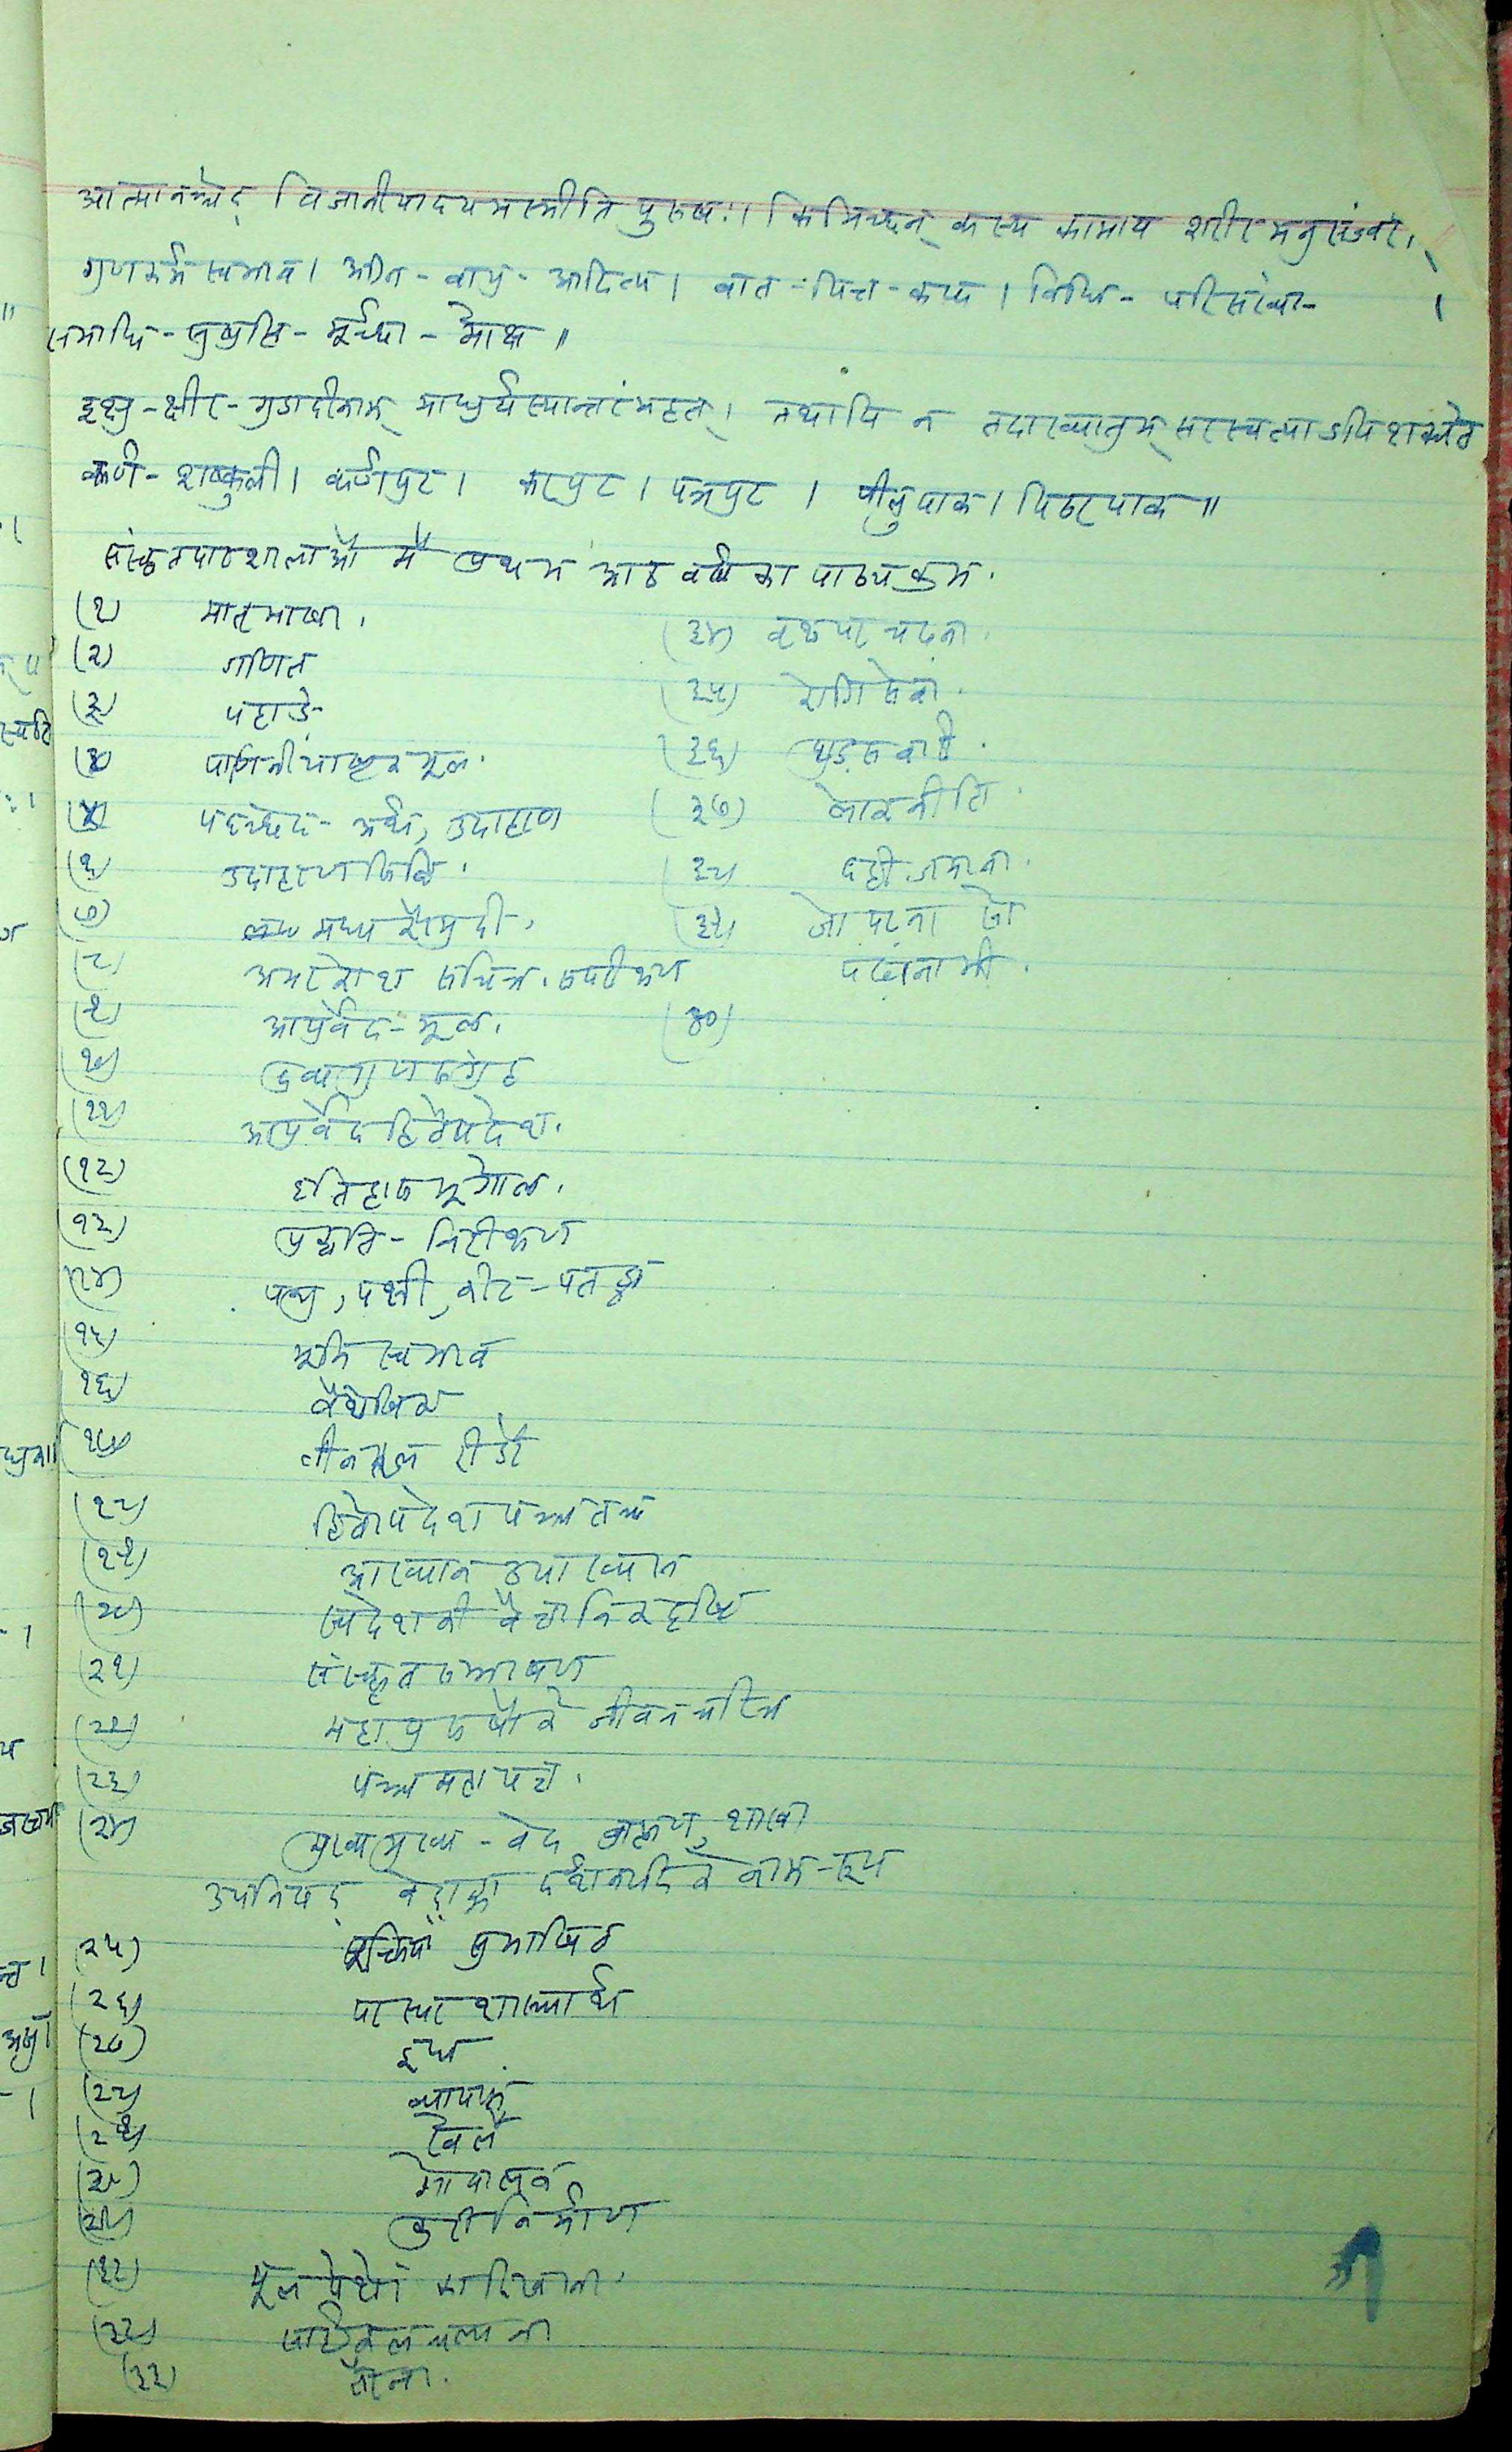 आत्मानञ्चेद् विजानीयादयमस्मीति पुरुषः। किमिच्छन् कस्य कामाय शरीरमनुसंज्वरे।
गुणकर्मस्वभाव। अग्नि-वायु-आदित्य। वात-पित्त-कफ। विधि-परिसंख्या-।
समाधि-सुषुप्ति-मूर्च्छा-मोक्ष॥
इक्षु-क्षीर-गुडादीनाम् माधुर्यस्यान्तरंमहत्। तथापि न तदाख्यातुम् सरस्वत्याऽपि शक्यते
कर्ण-शष्कुली। कर्णपुट। करपुट। पत्रपुट। पीलुपाक। पिठरपाक॥
संस्कृतपाठशालाओं में प्रथम आठ वर्ष का पाठ्यक्रम.
(१) मातृभाषा.
(२) गणित
(३) पहाड़े-
(४) पाणिनीयाष्टक मूल.
(५) पदच्छेद-अर्थ, उदाहरण
(६) उदाहरणसिद्धि.
(७) मध्य कौमुदी.
(८) अमरकोश सचित्र.
(९) आयुर्वेद-मूल.
(१०) द्रव्यगुणसंग्रह
(११) आयुर्वेदहितोपदेश.
(१२) इतिहास भूगोल.
(१३) प्रकृति-निरीक्षण
(१४) पशु, पक्षी, कीट-पतङ्ग
(१५) भूमि स्वभाव
(१६) वैशेषिक
(१७) तीन रीडरें
(१८) हितोपदेश पञ्चतन्त्र
(१९) आख्यान उपाख्यान
(२०) स्वदेश की वैज्ञानिक दृष्टि
(२१) संस्कृत सम्भाषण
(२२) महापुरुषों के जीवन चरित्र
(२३) पञ्च महायज्ञ.
(२४) मुख्य मुख्य-वेद ब्राह्मण, शाखा
उपनिषद् वेदाङ्ग दर्शनादि के नाम-रूप
(२५) सूक्तियाँ सुभाषित
(२६) परस्पर शास्त्रार्थ
(२७)
(२८) व्यायाम
(२९) खेल
(३०) गोपालन
(३१) कुटी निर्माण
(३२)
(३३) साईकल चलाना
(३३) तैरना.
(३४) वृक्ष पर चढ़ना.
(३५) रोगि सेवा.
(३६) घुड़सवारी.
(३७) लोकनीति.
(३८) दही जमाना.
(३९) जो पढ़ना सो
पढ़ाना भी.
(४०)